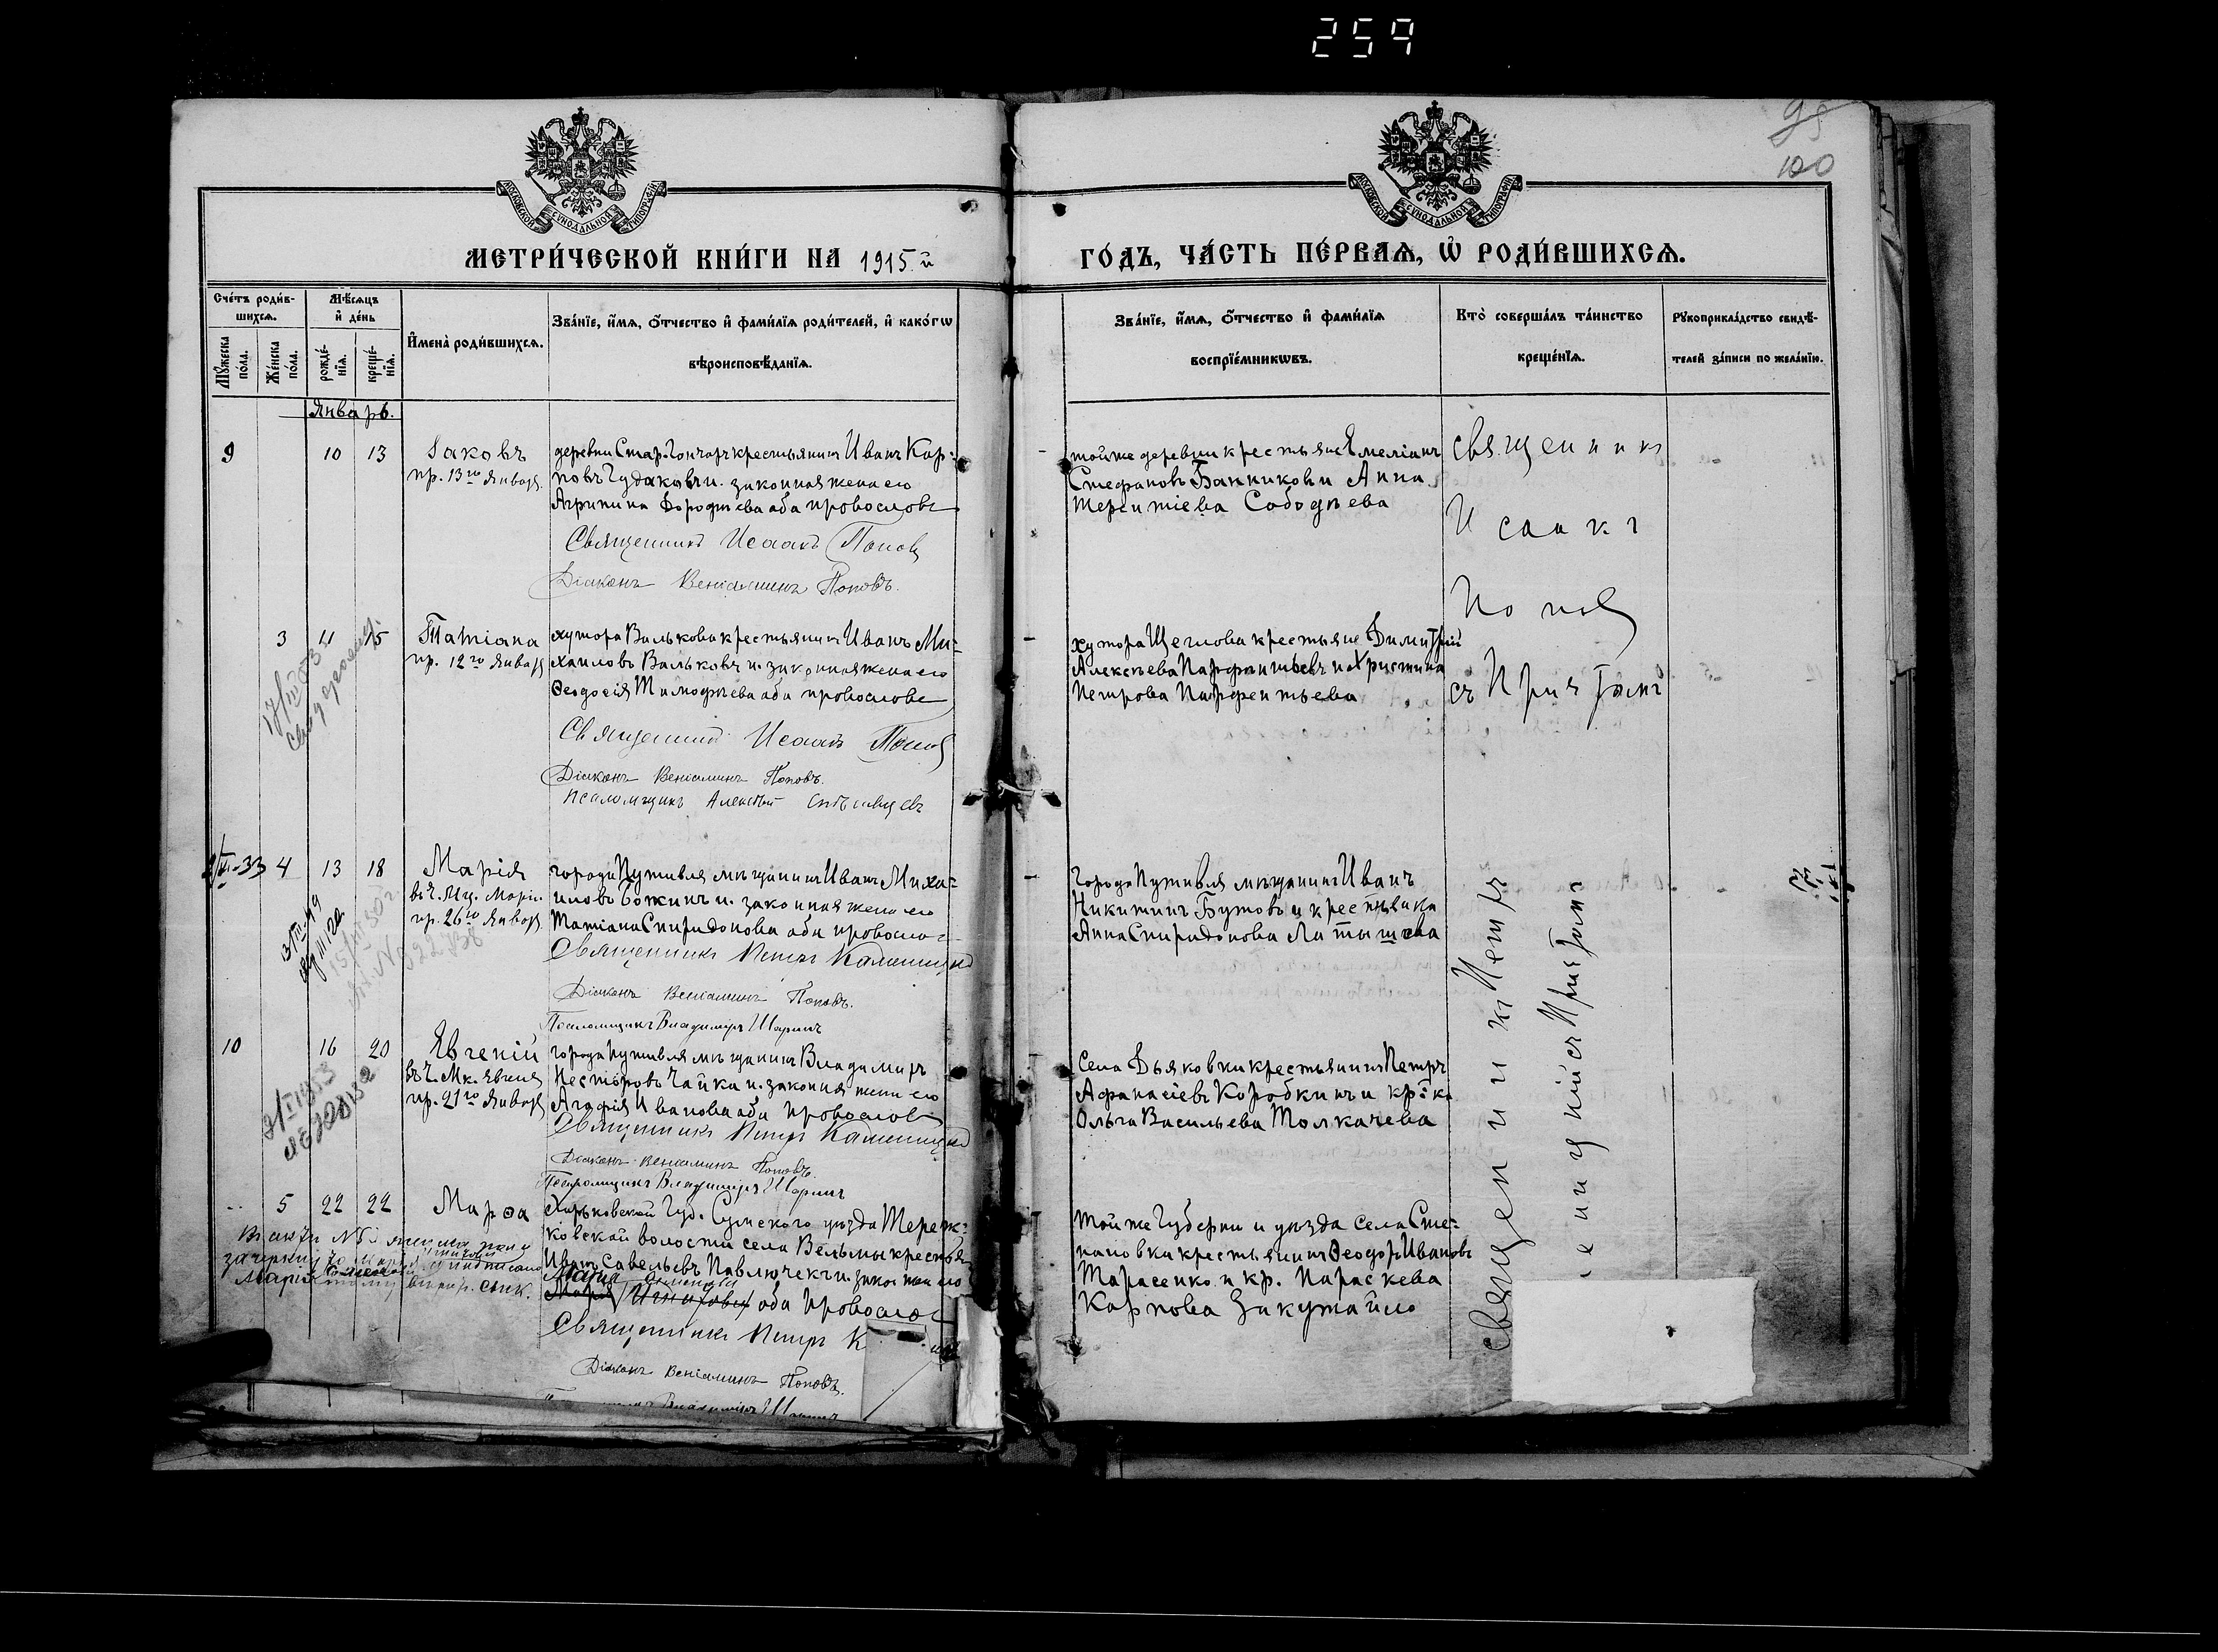 259
95
100
МОСКОВСКОЙ СѴНОДАЛЬНОЙ ТИПОГРАФІИ
МОСКОВСКОЙ СѴНОДАЛЬНОЙ ТИПОГРАФІИ
МЕТРИ́ЧЕСКОЙ КНИ́ГИ НА 1915 й
ГО́ДЪ, ЧА́СТЬ ПЕ́РВАѦ, Ѡ҆ РОДИ́ВШИХСѦ.
Сче́тъ роди́в-
шихсѧ.
Мꙋ́жеска по́ла.
Же́нска по́ла.
Мѣ́сѧцъ
и҆ де́нь
рожде́-
нїѧ.
креще́-
нїѧ.
И҆мена̀ роди́вшихсѧ.
Зва́нїе, и҆́мѧ, ѻ҆́тчество и҆ фами́лїѧ роди́телей, и҆ како́гѡ
вѣроисповѣ́данїѧ.
Зва́нїе, и҆́мѧ, ѻ҆́тчество и҆ фами́лїѧ
воспрїе́мникѡвъ.
Кто̀ соверша́лъ та́инство
креще́нїѧ.
Рꙋкоприкла́дство свидѣ́-
телей за́писи по жела́нїю.
Январь.
9 10 13
Іаковъ
пр. 13го Января.
деревни Стар. Гончар крестьянинъ Иванъ Кар-
повъ Чудаковъ и законная жена его
Агрипина Дорофѣева оба православ
Священникъ Исаакъ Поповъ
Діаконъ Веніаминъ Поповъ.
тойже деревни крестьяне Емеліанъ
Стефановъ Банниковъ и Анна
Терентіева
Священникъ
Исаакъ
Поповъ
съ Причтомъ
3 11 15
Татіана
пр. 12го Января
хутора Валькова крестьянинъ Иванъ Ми-
хаиловъ Вальковъ и законная жена его
Ѳеодосія Тимофѣева оба православ
Священникъ Исаакъ Поповъ
Діаконъ Веніаминъ Поповъ.
Псаломщикъ Алексѣй
хутора Щеглова крестьяне Димитрій
Алексѣевъ Парфентьевъ и Христина
Петрова Парфентьева
4 13 18
Марія
пр. 26го Января
города Путивля мѣщанинъ Иванъ Миха-
иловъ Божинъ и законная жена его
Татіана Спиридонова оба православ
Священникъ Петръ Каменицкій
Діаконъ Веніаминъ Поповъ.
Псаломщикъ Владиміръ Шаринъ
Города Путивля мѣщанинъ Иванъ
Никитинъ Бутовъ и крестьянка
Анна Спиридонова Латышева
Священникъ Петръ
Каменицкій съ Причтомъ
10 16 20
Евгеній
въ ч. Мк. Евгенія
пр. 21го Января
города Путивля мѣщанинъ Владиміръ
Несторовъ Чайка и законная жена его
Агафія Иванова оба православ
Священникъ Петръ Каменицкій
Діаконъ Веніаминъ Поповъ.
Псаломщикъ Владиміръ Шаринъ
Села Дьяковки крестьянинъ Петръ
Афанасіевъ Коробкинъ и кр-ка
Ольга Васильева Толкачева
5 22 22
Марѳа
Харьковской Губ. Сумского уѣзда Тереш-
ковской волости села Вельмы крестья-
Иванъ Савельевъ Павлючекъ и закон жена его
оба православ
Священникъ Петръ К
Діаконъ Веніаминъ Поповъ.
Тойже Губерни и уѣзда Села Сте-
пановки крестьянинъ Ѳеодоръ Ивановъ
Тарасенко и кр. Параскева
Карпова Закутайло